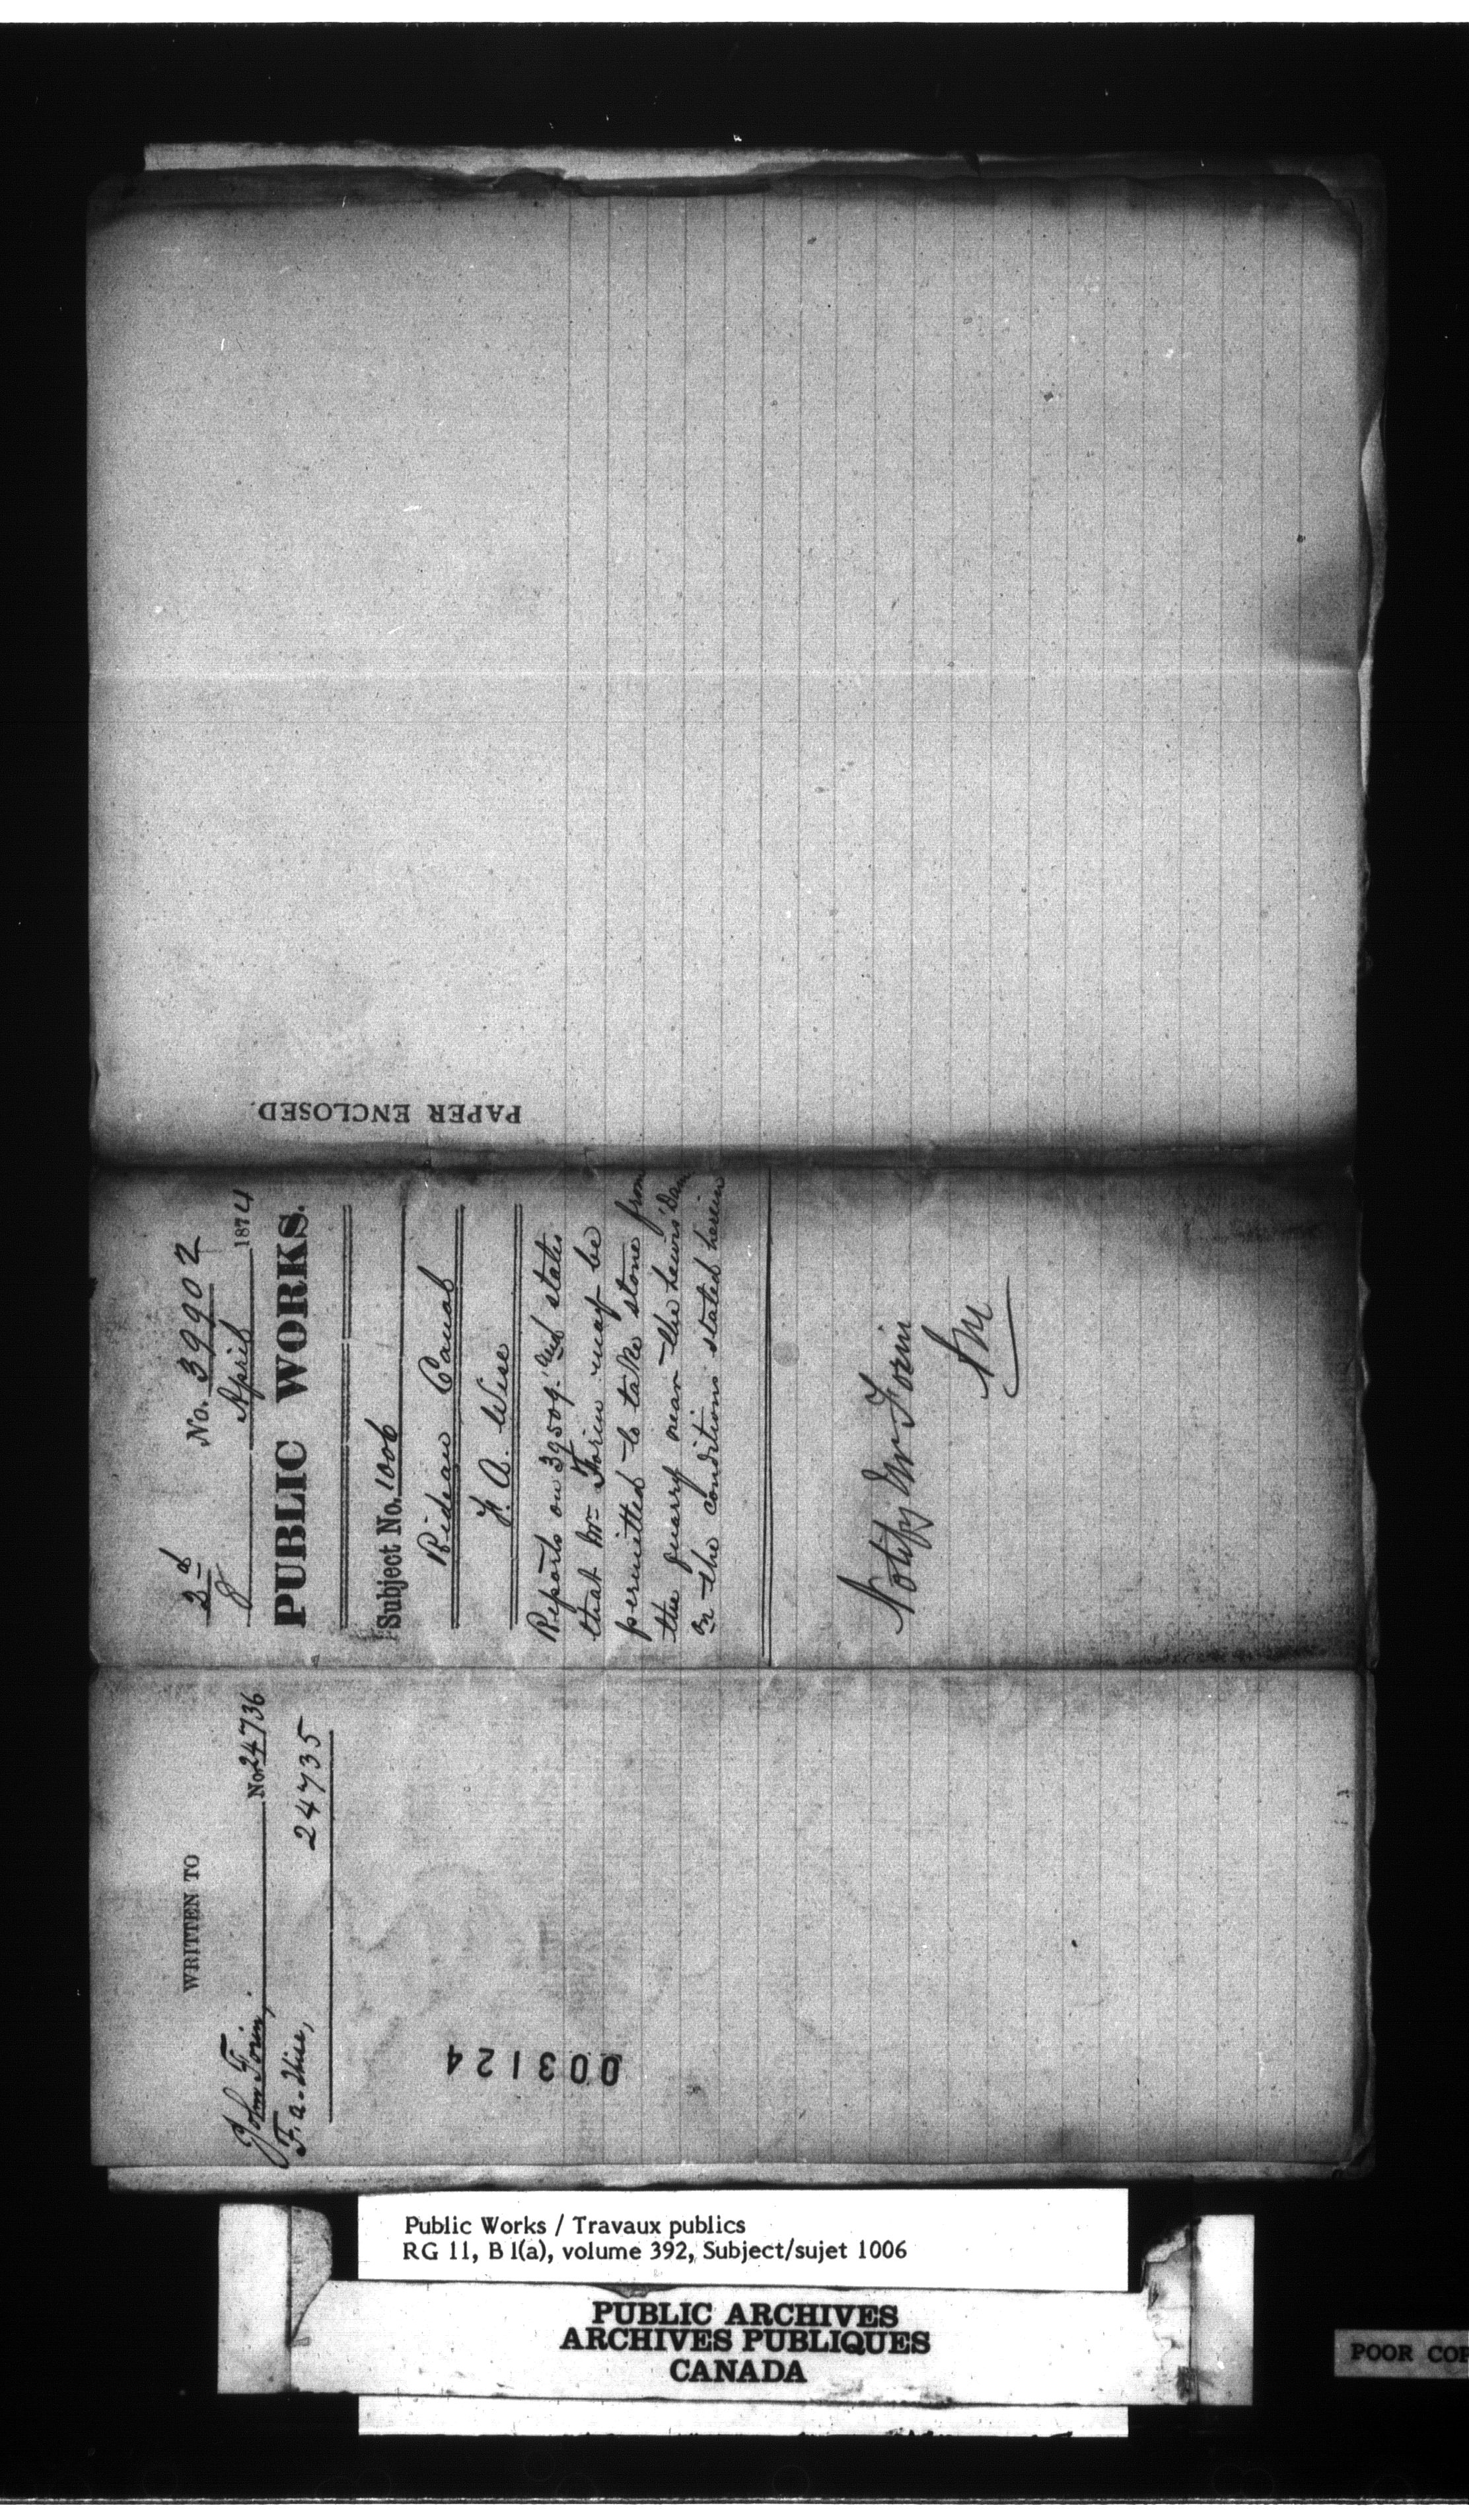 PAPER ENCLOSED.
No. 39902
8 April 1874
PUBLIC WORKS.
Subject No. 1006
Rideau Canal
F. A. Wise
Reports on 39509. and states
that Mr Forin may be
permitted to take stone from
the quarry near the Dam
on the conditions stated herein
Notify Mr Forin
WRITTEN TO
John Forin, No. 24736
F. A. Wise, 24735
003124
Public Works / Travaux publics
RG 11, B 1(a), volume 392, Subject/sujet 1006
PUBLIC ARCHIVES
ARCHIVES PUBLIQUES
CANADA
POOR COP